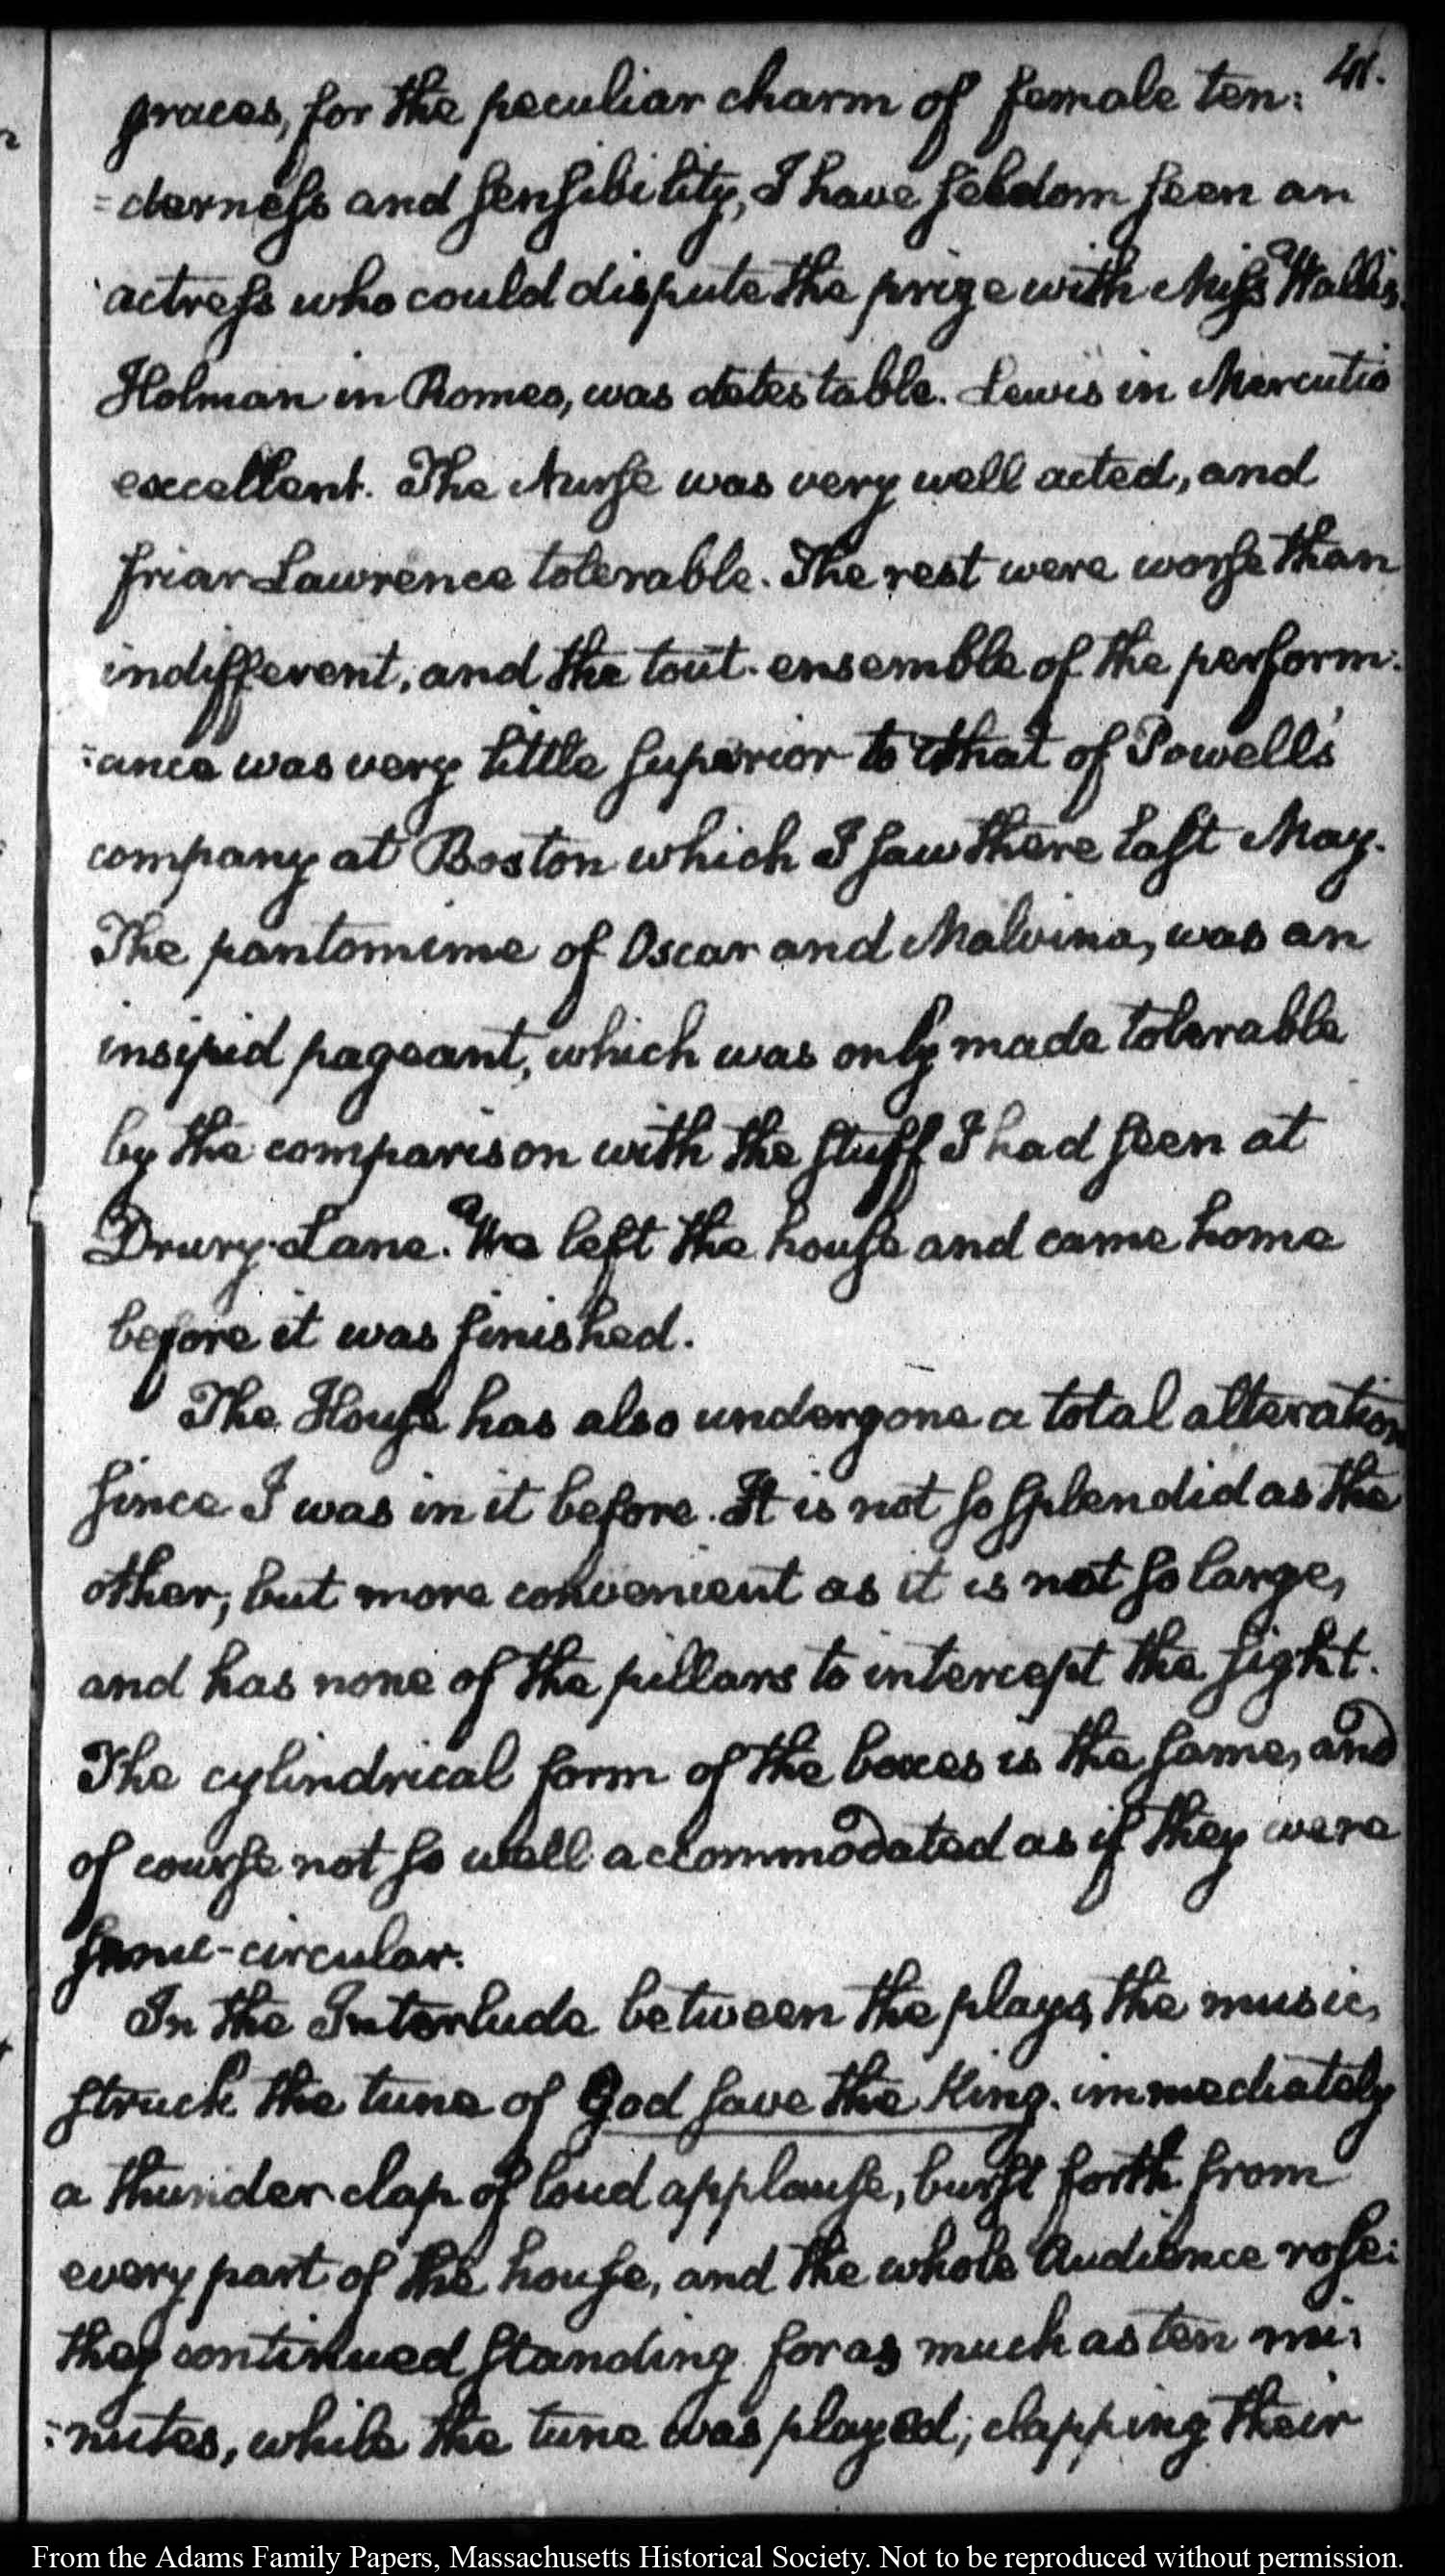 41.
graces, for the peculiar charm of female ten:
=derness and sensibility, I have seldom seen an
actress who could dispute the prize with Miss Wallis.
Holman in Romeo, was detestable. Lewis in Mercutio
excellent. The Nurse was very well acted, and
friar Lawrence tolerable. The rest were worse than
indifferent, and the tout-ensemble of the perform:
:ance was very little superior to that of Powell's
company at Boston which I saw there last May.
The pantomime of Oscar and Malvina, was an
insipid pageant, which was only made tolerable
by the comparison with the stuff I had seen at
Drury-Lane. We left the house and came home
before it was finished.
The House has also undergone a total alteration
since I was in it before. It is not so splendid as the
other, but more convenient as it is not so large,
and has none of the pillars to intercept the sight.
The cylindrical form of the boxes is the same, and
of course not so well accommodated as if they were
semi-circular.
In the Interlude between the plays, the music,
struck the tune of God save the King. immediately
a thunder clap of loud applause, burst forth from
every part of the house, and the whole Audience rose:
they continued standing for as much as ten mi:
:nutes, while the tune was played; clapping their
From the Adams Family Papers, Massachusetts Historical Society. Not to be reproduced without permission.